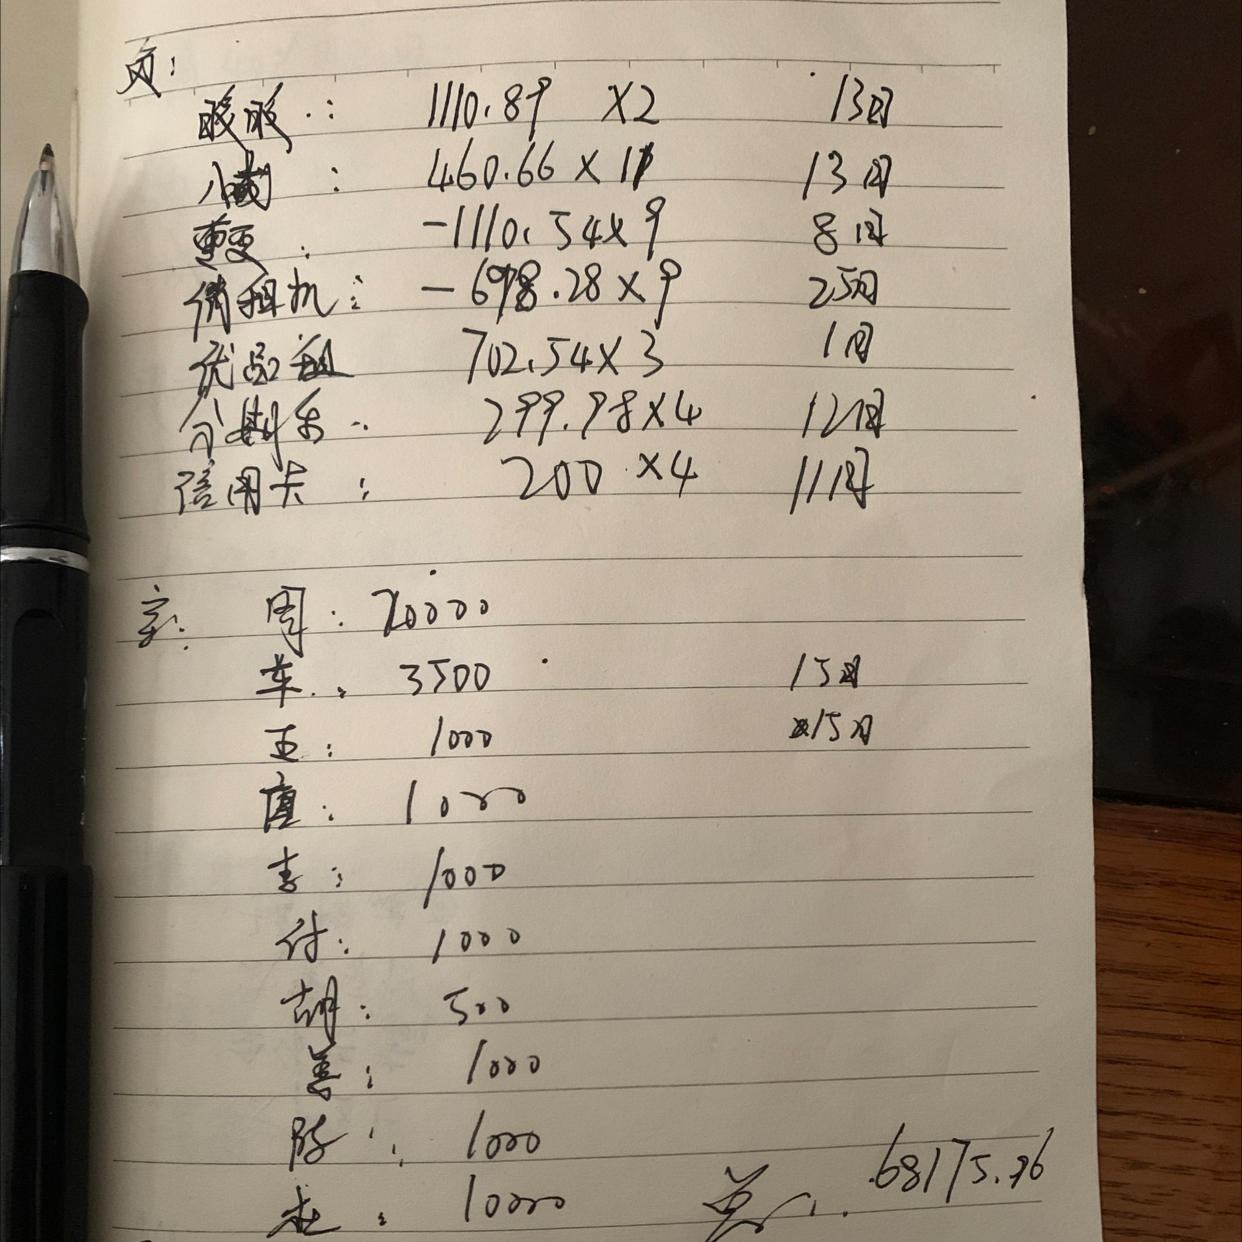 1110.89 ×2 13日
460.66 × 11 13日
-1110.54×9 8日
俏租机: -698.28×9 25日
优品租 702.54×3 1日
分期乐: 299.98×4 12日
信用卡: 200 ×4 11日
周: 20000
车: 3500 15日
王: 1000 15日
唐: 10000
李: 1000
付: 1000
胡: 500
1000
陈: 1000
赵: 10000
总: 68175.96